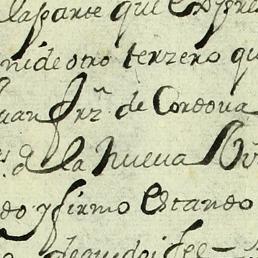 la parte que Expre
ni de otro terzero qu
Juan frz̃ de Cordova
s. de la nueva
do y firmo Estando